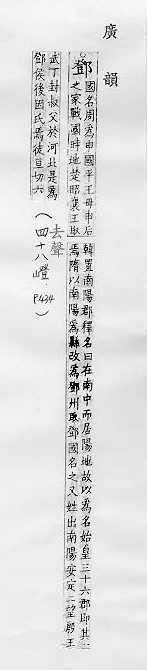 廣韻
鄧 國名周為申國平王母申后
之家戰國時地楚昭襄王取
韓置南陽郡釋名曰在南中而居陽地故以為名始皇三十六郡即其一
焉隋以南陽為縣改為鄧州取鄧國名之又姓出南陽安定二望殷王
武丁封叔父於河北是為
鄧侯後因氏焉徒亘切六
去聲
(四十八嶝 P434)